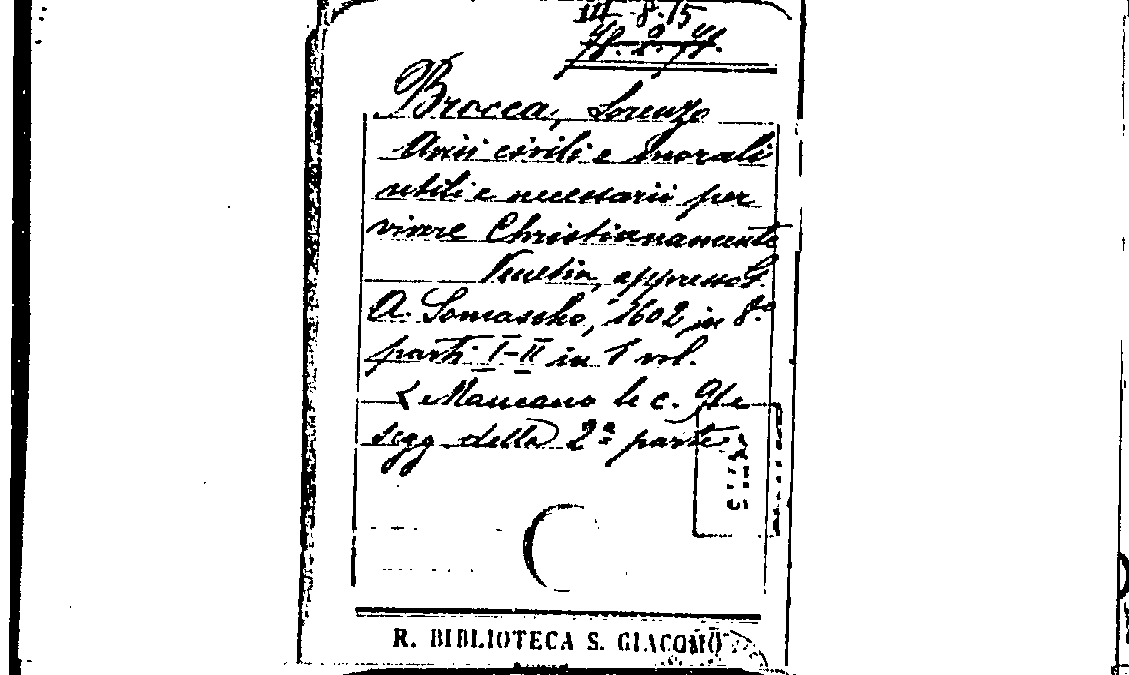 III-8.15
Brocca, Lorenzo
Avisi civili e morali
utili e necessarii per
vivere Christianamente
Venetia, appresso G.
A. Somascho, 1602 in 8.º
parti I-II in 1 vol.
< Mancano le c. 91 e
segg della 2ª parte
R. BIBLIOTECA S. GIACOMO